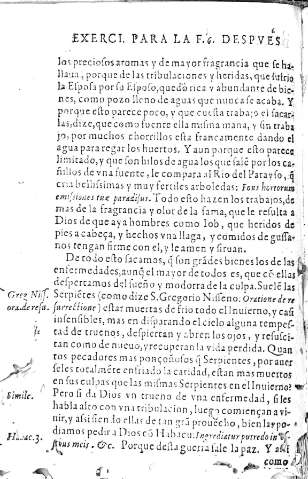 6
EXERCI. PARA LA F.6. DESPVES
los preciosos aromas y de mayor fragrancia que se ha-
llaua, porque de las tribulaciones y heridas, que sufrio
la Esposa por su Esposo, quedò rica y abundante de bie-
nes, como pozo lleno de aguas que nunca se acaba. Y
porque esto parece poco, y que cuesta trabajo el sacar-
las, dize, que como fuente ella misma mana, y sin traba
jo, por muchos chorrillos esta francamente dando el
agua para regar los huertos. Y aun porque esto parece
limitado, y que son hilos de agua los que salẽ por los ca-
ñillos de vna fuente, le compara al Rio del Parayso, q̃
cria bellissimas y muy fertiles arboledas: Fons hortorum
emissiones tuæ paradisus. Todo esto hazen los trabajos, de
mas de la fragrancia y olor de la fama, que le resulta a
Dios de que aya hombres como Iob, que heridos de
pies a cabeça, y hechos vna llaga, y comidos de gusa-
nos tengan firme con el, y le amen y siruan.
De todo esto sacamos, q̃ son grãdes bienes los de las
enfermedades, aunq̃ el mayor de todos es, que cõ ellas
despertamos del sueño y modorra de la culpa. Suelẽ las
Serpiẽtes (como dize S. Gregorio Nisseno. Oratione de re
surrectione) estar muertas de frio todo el Inuierno, y casi
insensibles, mas en disparando el cielo alguna tempes-
tad de truenos, despiertan y abren los ojos, y resusci-
tan como de nueuo, y recuperan la vida perdida. Quan
tos pecadores mas ponçoñosos q̃ Serpientes, por auer
seles totalmẽte enfriado la caridad, estan mas muertos
en sus culpas que las mismas Serpientes en el Inuierno?
Pero si da Dios vn trueno de vna enfermedad, si les
habla alto con vna tribulacion, luego comiençan a vi-
uir, y assi siendo ellas de tan grã prouecho, bien la po-
diamos pedir a Dios cõ Habacu. Ingrediatur putredo in os
sibus meis. &c. Porque desta guerra sale la paz. Y assi
como
Greg. Niss.
ora. de resu.
Simile.
Habac. 3.